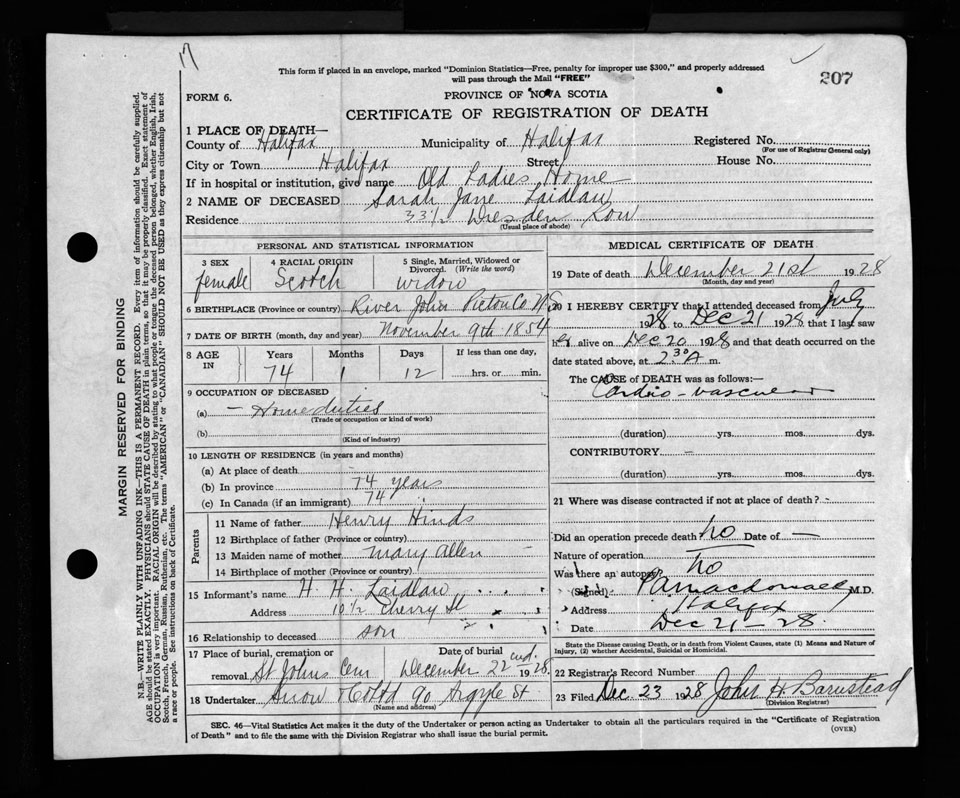 17
This form if placed in an envelope, marked "Dominion Statistics—Free, penalty for improper use $300," and properly addressed
will pass through the Mail "FREE"
207
FORM 6.
PROVINCE OF NOVA SCOTIA
CERTIFICATE OF REGISTRATION OF DEATH
1 PLACE OF DEATH—
County of Halifax Municipality of Halifax Registered No.
(For use of Registrar General only)
City or Town Halifax Street House No.
If in hospital or institution, give name Old Ladies Home
2 NAME OF DECEASED Sarah Jane Laidlaw
Residence 33½ Dresden Row
(Usual place of abode)
PERSONAL AND STATISTICAL INFORMATION
3 SEX 4 RACIAL ORIGIN 5 Single, Married, Widowed or
Divorced. (Write the word)
female Scotch widow
6 BIRTHPLACE (Province or country) River John Pictou Co N.S
7 DATE OF BIRTH (month, day and year) November 9th 1854
8 AGE IN Years Months Days If less than one day,
74 1 12 hrs. or min.
9 OCCUPATION OF DECEASED
(a) — Home duties
(Trade or occupation or kind of work)
(b)
(Kind of industry)
10 LENGTH OF RESIDENCE (in years and months)
(a) At place of death
(b) In province 74 years
(c) In Canada (if an immigrant) 74
Parents
11 Name of father Henry Hinds
12 Birthplace of father (Province or country)
13 Maiden name of mother Mary Allen
14 Birthplace of mother (Province or Country)
15 Informant's name H. H. Laidlaw
Address 10½ Cherry St
16 Relationship to deceased son
17 Place of burial, cremation or Date of burial
removal St Johns Cem December 22nd. 1928
18 Undertaker Snow & Co Ltd 90 Argyle St
(Name and address)
MEDICAL CERTIFICATE OF DEATH
19 Date of death December 21st 1928
(Month, day and year)
20 I HEREBY CERTIFY that I attended deceased from July
1928 to Dec 21 1928 that I last saw
her alive on Dec 20 1928 and that death occurred on the
date stated above, at 2 30 A m.
The CAUSE of DEATH was as follows:—
Cardio-vascular
(duration) yrs. mos. dys.
CONTRIBUTORY —
(duration) yrs. mos. dys.
21 Where was disease contracted if not at place of death? -
Did an operation precede death no Date of —
Nature of operation
Was there an autopsy no
(Signed) M.D.
Address Halifax
Date Dec 21 - 28.
State the Disease causing Death, or in death from Violent Causes, state (1) Means and Nature of
Injury, (2) whether Accidental, Suicidal or Homicidal.
22 Registrar's Record Number
23 Filed Dec. 23 1928 John H Barnstead
(Division Registrar)
SEC. 46—Vital Statistics Act makes it the duty of the Undertaker or person acting as Undertaker to obtain all the particulars required in the "Certificate of Registration
of Death" and to file the same with the Division Registrar who shall issue the burial permit.
(OVER)
MARGIN RESERVED FOR BINDING
N.B.—WRITE PLAINLY WITH UNFADING INK—THIS IS A PERMANENT RECORD. Every item of information should be carefully supplied.
AGE should be stated EXACTLY. PHYSICIANS should STATE CAUSE OF DEATH in plain terms, so that it may be properly classified. Exact statement of
OCCUPATION is very important. RACIAL ORIGIN will be described by stating to what people or tongue the deceased person belonged, whether English, Irish,
Scotch, French, German, Russian, Ruthenian, etc. The terms "AMERICAN" or "CANADIAN" SHOULD NOT BE USED as they express citizenship but not
a race or people. See instructions on back of Certificate.